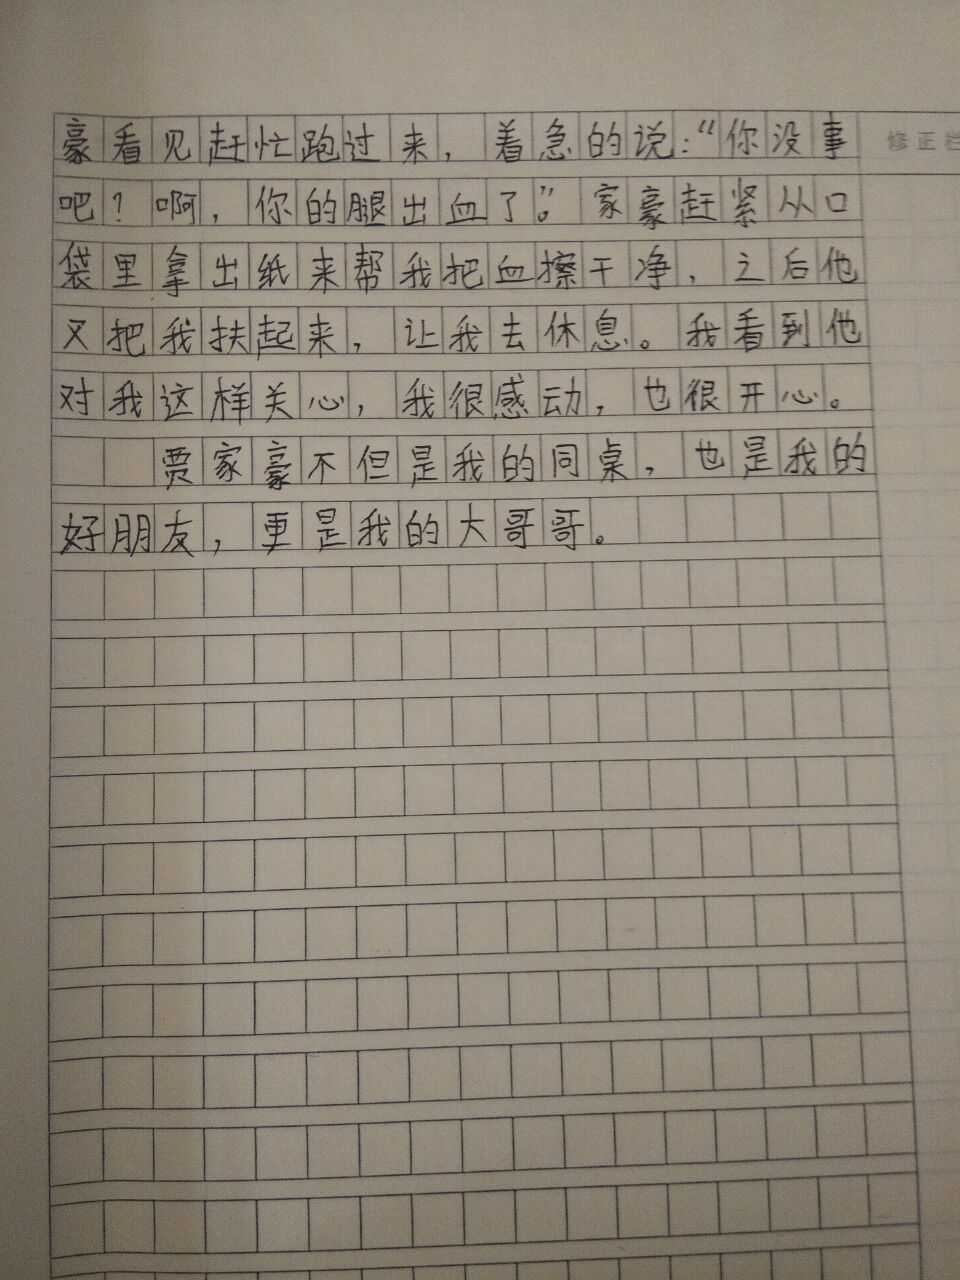 豪看见赶忙跑过来，着急的说：“你没事
修正栏
吧？啊，你的腿出血了”。家豪赶紧从口
袋里拿出纸来帮我把血擦干净，之后他
又把我扶起来，让我去休息。我看到他
对我这样关心，我很感动，也很开心。
贾家豪不但是我的同桌，也是我的
好朋友，更是我的大哥哥。